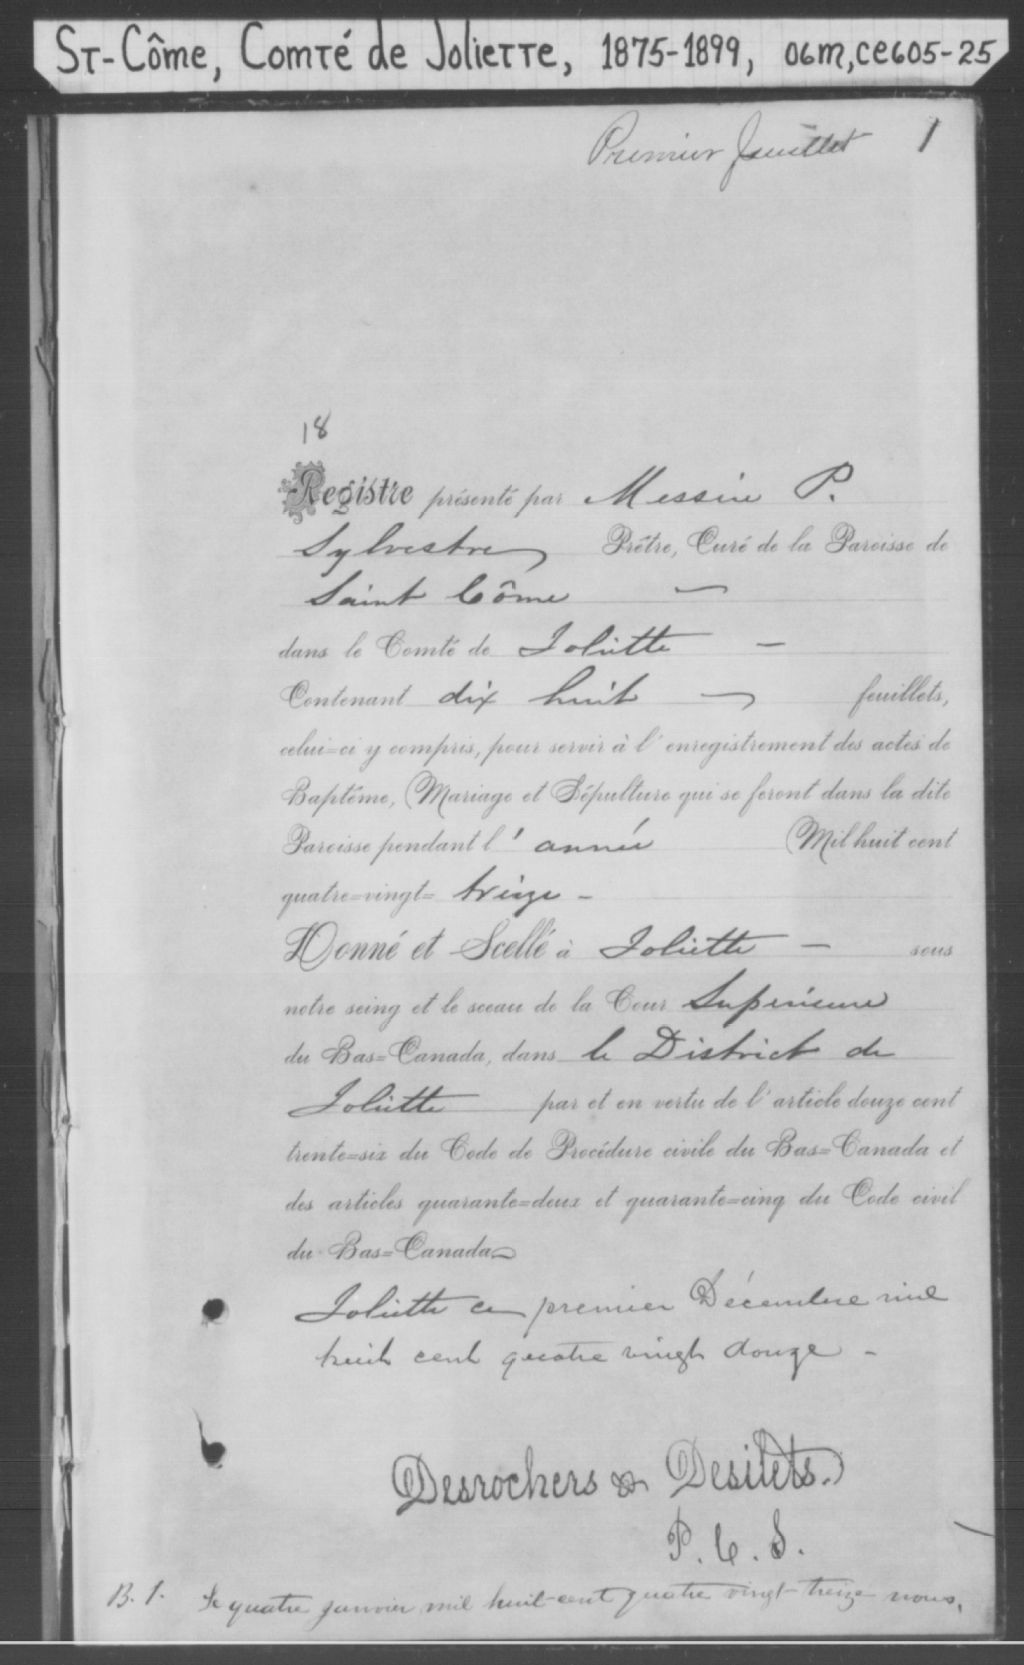 St-Côme, Comté de Joliette, 1875-1899, 06M,CE605-25
Premier feuillet 1
18
Registre présenté par Messire P.
Sylvestre Prêtre, Curé de la Paroisse de
Saint Côme —
dans le Comté de Joliette —
Contenant dix huit — feuillets,
celui=ci y compris, pour servir à l'enregistrement des actes de
Baptême, Mariage et Sépulture qui se feront dans la dite
Paroisse pendant l'année Mil huit cent
quatre=vingt= treize —
Donné et Scellé à Joliette — sous
notre seing et le sceau de la Cour Supérieure
du Bas=Canada, dans le District de
Joliette par et en vertu de l'article douze cent
trente=six du Code de Procédure civile du Bas=Canada et
des articles quarante=deux et quarante=cinq du Code civil
du Bas=Canada
Joliette ce premier Décembre mil
huit cent quatre vingt douze —
Desrochers & Desilets.
P. C. S.
B. 1. Le quatre janvier mil huit-cent quatre vingt-treize nous,